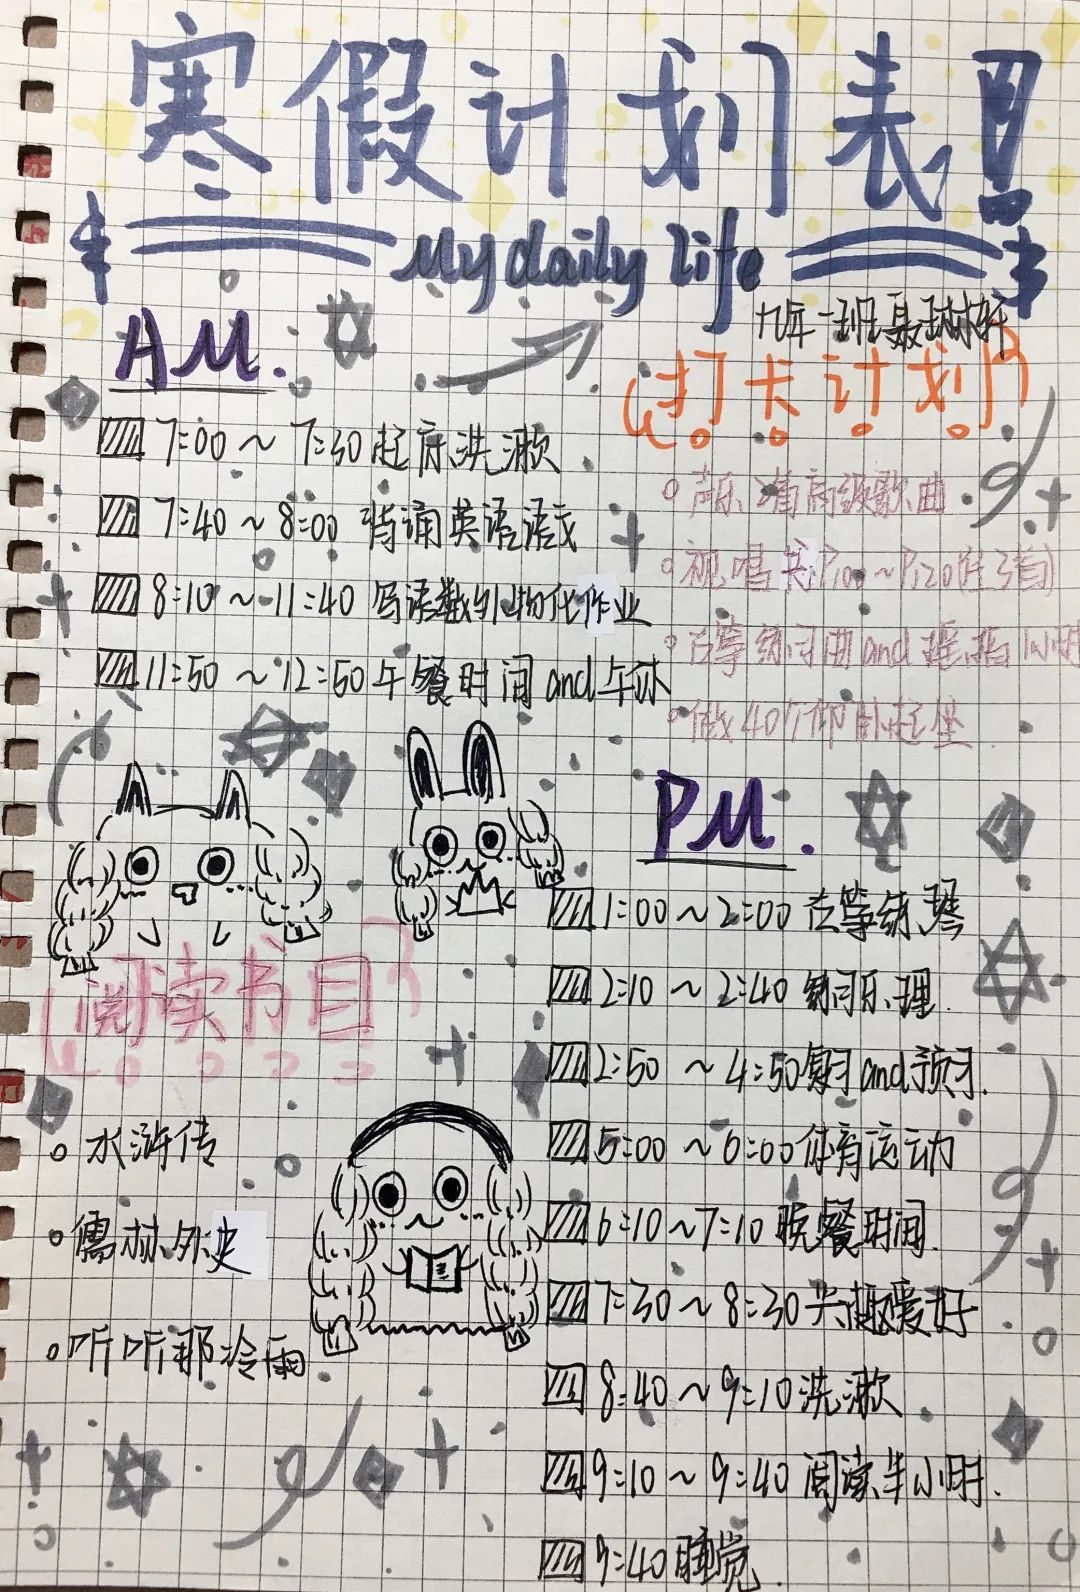 寒假计划表!
My daily life
九年一班聂琳轩
AM.
7:00～7:30起床洗漱
7:40～8:00 背诵英语语文
8:10～11:40 写语数外物化作业
11:50～12:50午餐时间and午休
打卡计划
声乐2首高级歌曲
视唱 ～P120(注3首)
古筝练习曲and摇指1小时
做40个仰卧起坐
PM.
1:00～2:00古筝练琴
2:10～2:40练习乐理.
2:50～4:50复习and预习.
5:00～6:00体育运动
6:10～7:10晚餐时间.
7:30～8:30兴趣爱好
8:40～9:10洗漱
9:10～9:40阅读半小时.
9:40睡觉.
阅读书目
水浒传
儒林外史
听听那冷雨